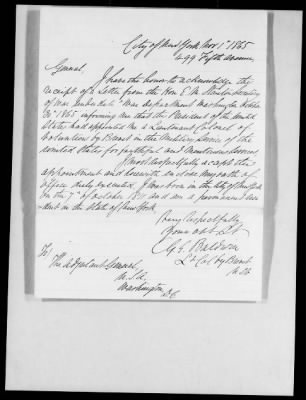 City of New York Nov 1st 1865
499 Fifth Avenue
General,
I have the honor to acknowledge the
receipt of a Letter from the Hon E. M. Stanton Secretary
of War under date "War Department Washington October
1865 informing me that the President of the United
States had appointed me a Lieutenant Colonel of
Volunteers by Brevet in the Military Service of the
United States for faithful and Meritorious Services.
I most respectfully accept the
appointment and herewith enclose my oath of
office duly executed. I was born in the City of New York
on the 7th of October and am a permanent resi-
dent in the State of New York
Very Respectfully
Your obt Svt
Baldwin
Lt Col by Brevet
To
The Adjutant General,
U.S.A.
Washington
D.C.